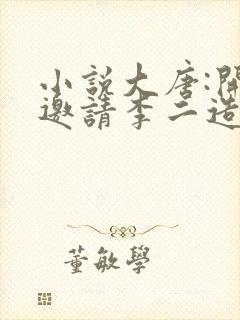 小説大唐:開
邀請李二造
董敏學